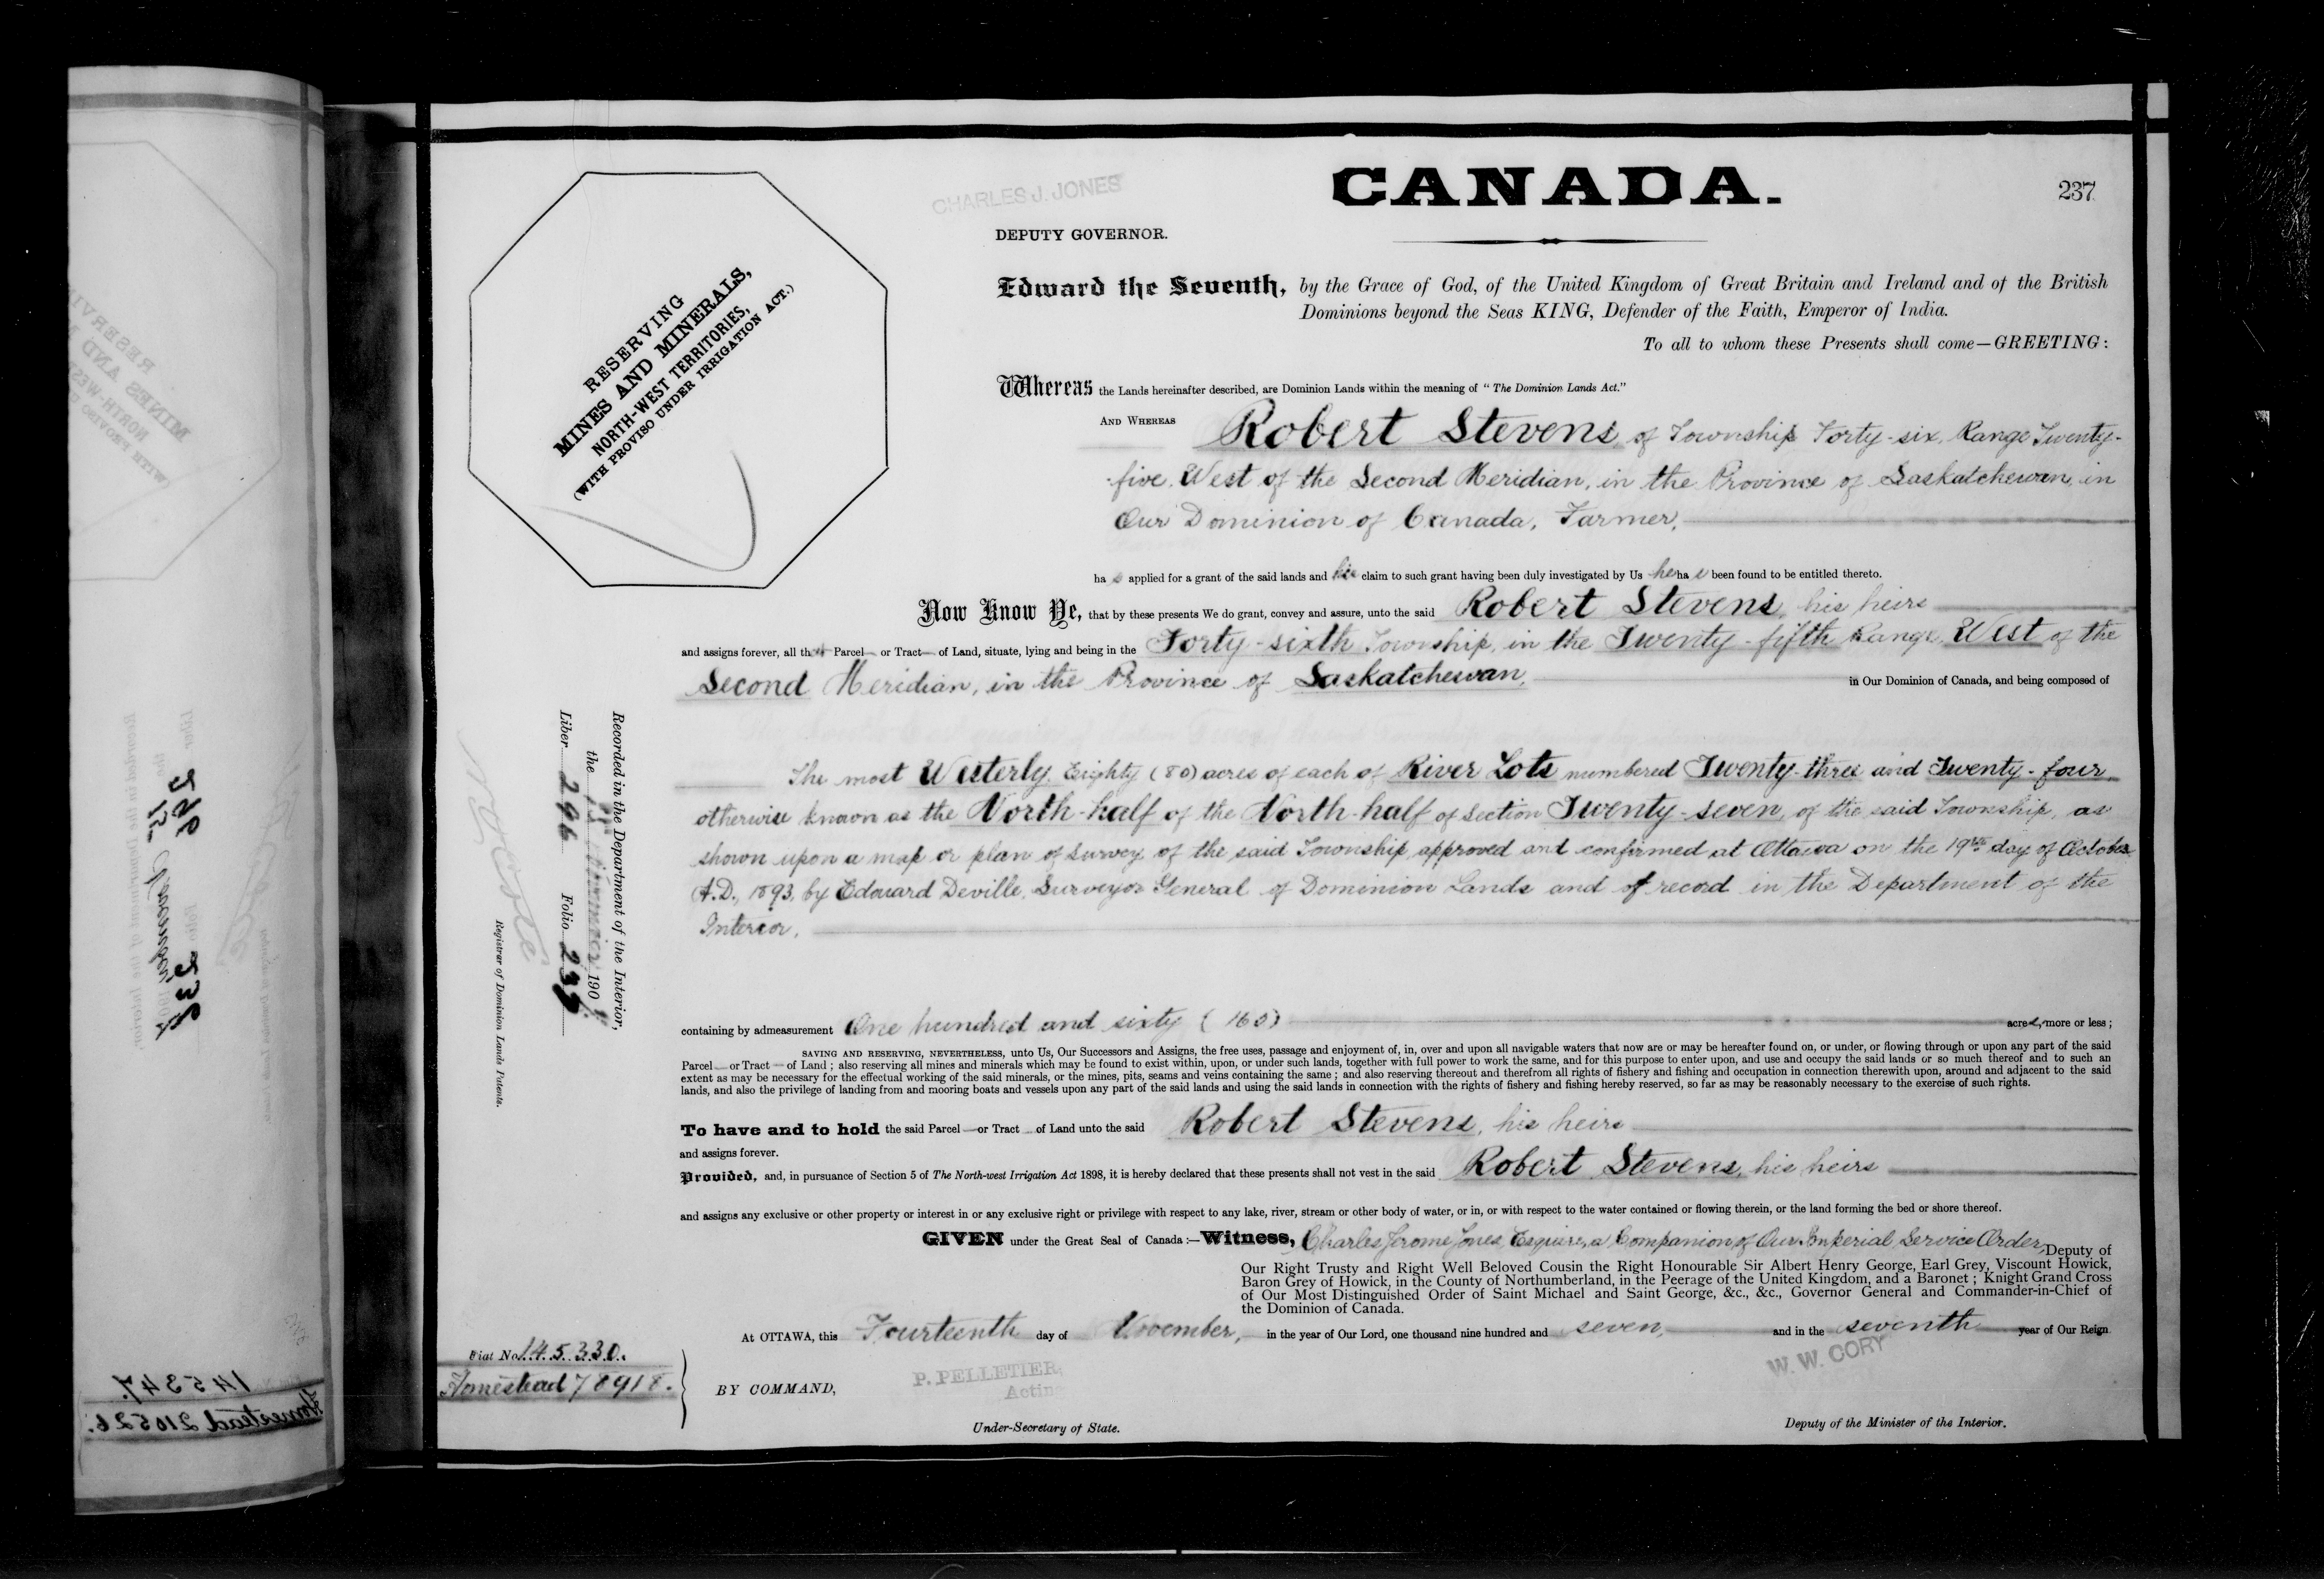 CHARLES J. JONES
CANADA.
237
DEPUTY GOVERNOR.
RESERVING
MINES AND MINERALS,
NORTH-WEST TERRITORIES,
(WITH PROVISO UNDER IRRIGATION ACT.)
Edward the Seventh, by the Grace of God, of the United Kingdom of Great Britain and Ireland and of the British
Dominions beyond the Seas KING, Defender of the Faith, Emperor of India.
To all to whom these Presents shall come—GREETING:
Whereas the Lands hereinafter described, are Dominion Lands within the meaning of "The Dominion Lands Act."
AND WHEREAS Robert Stevens, of Township Forty-six, Range Twenty-
five, West of the Second Meridian, in the Province of Saskatchewan, in
Our Dominion of Canada, Farmer,
ha s applied for a grant of the said lands and his claim to such grant having been duly investigated by Us he ha s been found to be entitled thereto.
Now Know Ye, that by these presents We do grant, convey and assure, unto the said Robert Stevens, his heirs
and assigns forever, all that Parcel or Tract of Land, situate, lying and being in the Forty-sixth Township, in the Twenty-fifth Range, West of the
Second Meridian, in the Province of Saskatchewan, in Our Dominion of Canada, and being composed of
The most Westerly Eighty (80) acres of each of River Lots numbered Twenty-three and Twenty-four,
otherwise known as the North-half of the North-half of Section Twenty-seven, of the said Township, as
shown upon a map or plan of survey of the said Township approved and confirmed at Ottawa on the 19th day of October
A.D., 1893, by Edouard Deville, Surveyor General of Dominion Lands and of record in the Department of the
Interior.
containing by admeasurement One hundred and sixty (160) acres, more or less;
SAVING AND RESERVING, NEVERTHELESS, unto Us, Our Successors and Assigns, the free uses, passage and enjoyment of, in, over and upon all navigable waters that now are or may be hereafter found on, or under, or flowing through or upon any part of the said
Parcel or Tract of Land; also reserving all mines and minerals which may be found to exist within, upon, or under such lands, together with full power to work the same, and for this purpose to enter upon, and use and occupy the said lands or so much thereof and to such an
extent as may be necessary for the effectual working of the said minerals, or the mines, pits, seams and veins containing the same; and also reserving thereout and therefrom all rights of fishery and fishing and occupation in connection therewith upon, around and adjacent to the said
lands, and also the privilege of landing from and mooring boats and vessels upon any part of the said lands and using the said lands in connection with the rights of fishery and fishing hereby reserved, so far as may be reasonably necessary to the exercise of such rights.
To have and to hold the said Parcel or Tract of Land unto the said Robert Stevens, his heirs
and assigns forever.
Provided, and, in pursuance of Section 5 of The North-west Irrigation Act 1898, it is hereby declared that these presents shall not vest in the said Robert Stevens, his heirs
and assigns any exclusive or other property or interest in or any exclusive right or privilege with respect to any lake, river, stream or other body of water, or in, or with respect to the water contained or flowing therein, or the land forming the bed or shore thereof.
GIVEN under the Great Seal of Canada:—Witness, Charles Jerome Jones, Esquire, a Companion of Our Imperial Service Order, Deputy of
Our Right Trusty and Right Well Beloved Cousin the Right Honourable Sir Albert Henry George, Earl Grey, Viscount Howick,
Baron Grey of Howick, in the County of Northumberland, in the Peerage of the United Kingdom, and a Baronet; Knight Grand Cross
of Our Most Distinguished Order of Saint Michael and Saint George, &c., &c., Governor General and Commander-in-Chief of
the Dominion of Canada.
At OTTAWA, this Fourteenth day of November, in the year of Our Lord, one thousand nine hundred and seven, and in the seventh year of Our Reign
Fiat No. 145330.
Homestead 78918.
BY COMMAND,
P. PELLETIER,
Acting
Under-Secretary of State.
W. W. CORY
Deputy of the Minister of the Interior.
Recorded in the Department of the Interior,
the 190
Liber 296 Folio 237
Registrar of Dominion Lands Patents.
145347.
Homestead 210526.